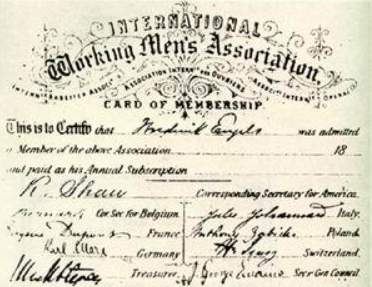 INTERNATIONAL
Working Men's Association
ASSOCIATION INTERN
CARD OF MEMBERSHIP.
This is to Certify that Friedrich Engels was admitted
a Member of the above Association 18
and paid as his Annual Subscription
R. Shaw Corresponding Secretary for America.
Cor Sec for Belgium. Jules Johannard Italy.
Eugene Dupont France Anthony Zabicki Poland
Karl Marx Germany H. Jung Switzerland.
Treasurer. J. George Eccarius Secr Genl Council